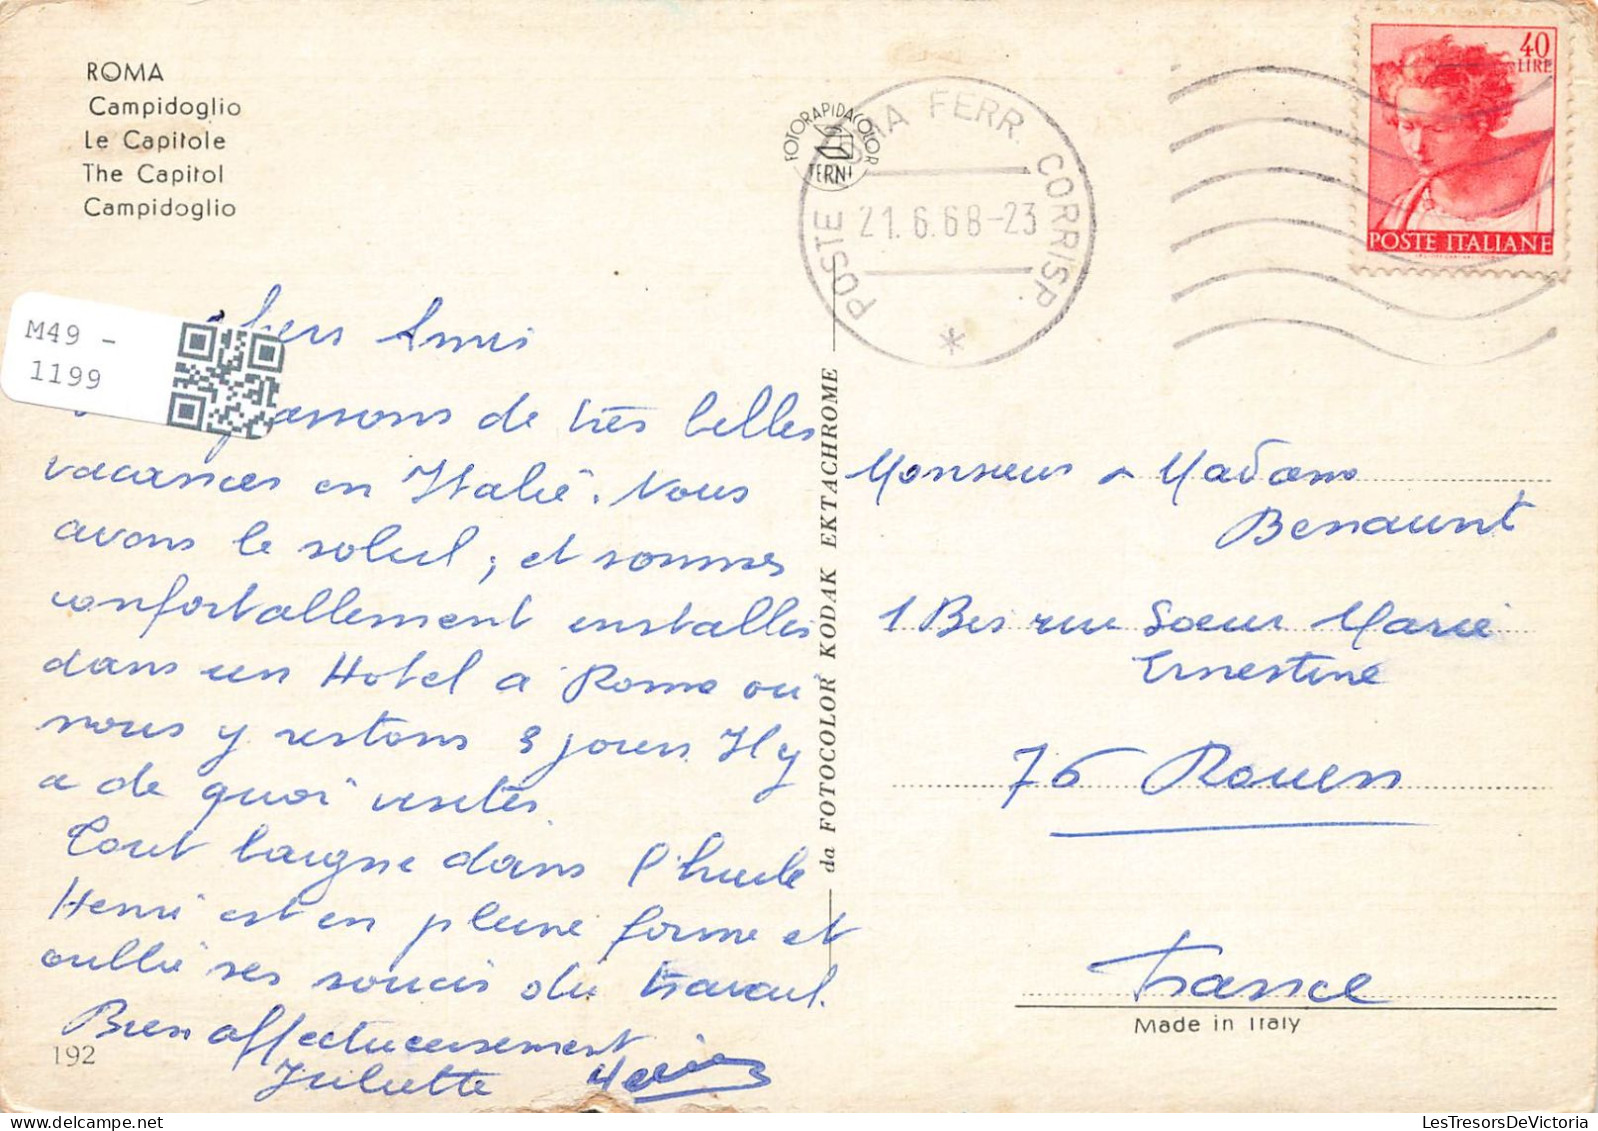 ROMA
Campidoglio
Le Capitole
The Capitol
Campidoglio
FOTORAPIDACOLOR
TERNI
POSTE ROMA FERR. CORRISP.
21.6.68-23
40
LIRE
POSTE ITALIANE
M49 -
1199
Chers Amis
passons de très belles
vacances en Italie. Nous
avons le soleil, et sommes
confortallement installés
dans un Hotel a Rome ou
nous y restons 3 jours. Il y
a de quoi visiter
Tout baigne dans l'huile
Henri est en pleine forme et
oublie ses soucis du travail.
Bien affectueusement
Juliette Henri
192
da FOTOCOLOR KODAK EKTACHROME
Monsieur & Madame
1 Bis rue Sœur Marie
Ernestine
76 Rouen
France
Made in Italy
LesTresorsDeVictoria.com